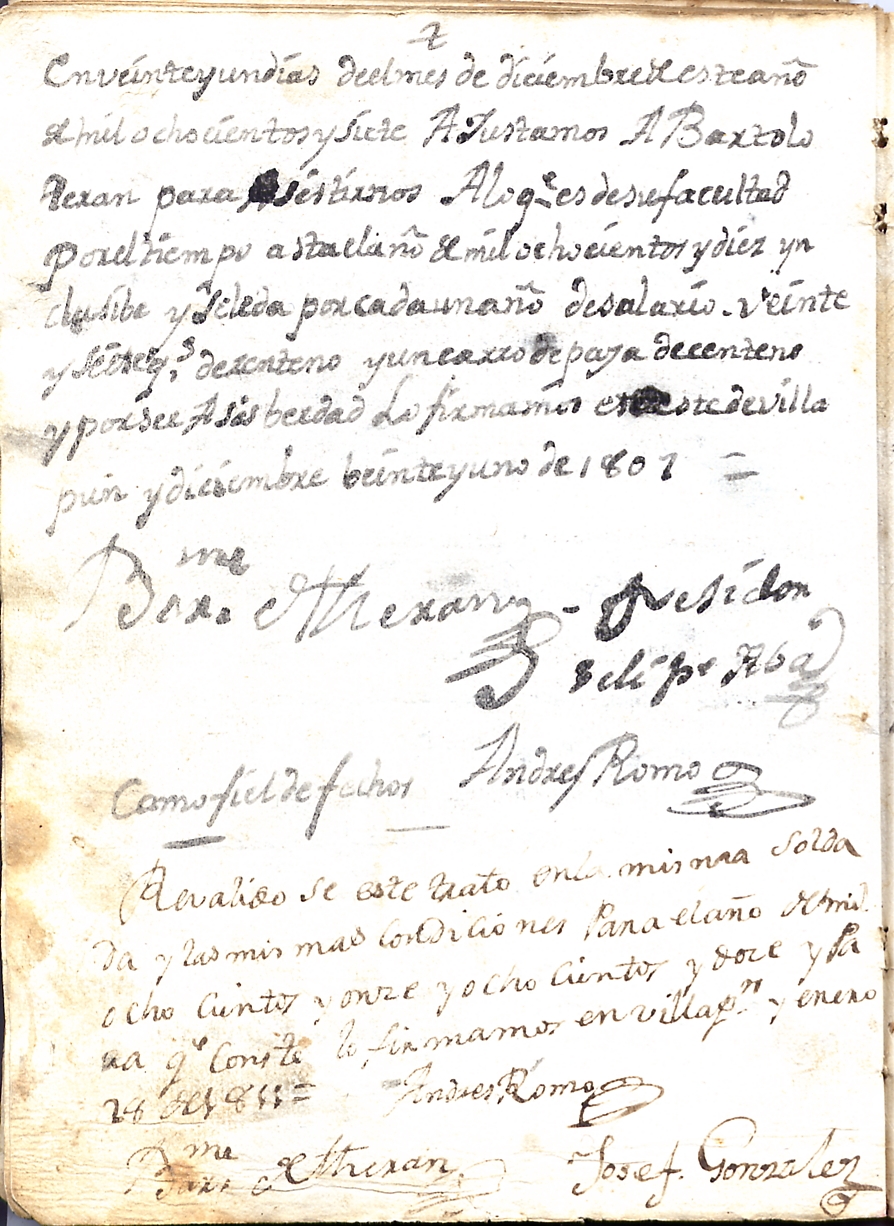 En veinte y un dias deel mes de diciembre de este año
de mil ochocientos y siete AJustamos A Bartolo
Teran para Asistirnos A lo qe es de su facultad
por el tiempo asta el año de mil ochocientos y diez yn
clusibe y se le da por cada un año de salario veinte
y siete qs de zenteno y un carro de paja de centeno
y por ser Asi berdad Lo firmamos en este de villa
pun y diciembre beinte y uno de 1807 =
Barme de Theran - Presidon
Felipe Abad
Como fiel de fechos Andres Romo
Revalido se este trato en la misma Solda
da y las mismas Condiciones Para el año de mil
ocho Cientos y onze y ocho Cientos y doce y Pa
ra qe Conste lo firmamos en villapn y enero
28 de 1811 = Andres Romo
Barme de Theran Josef. Gonzalez